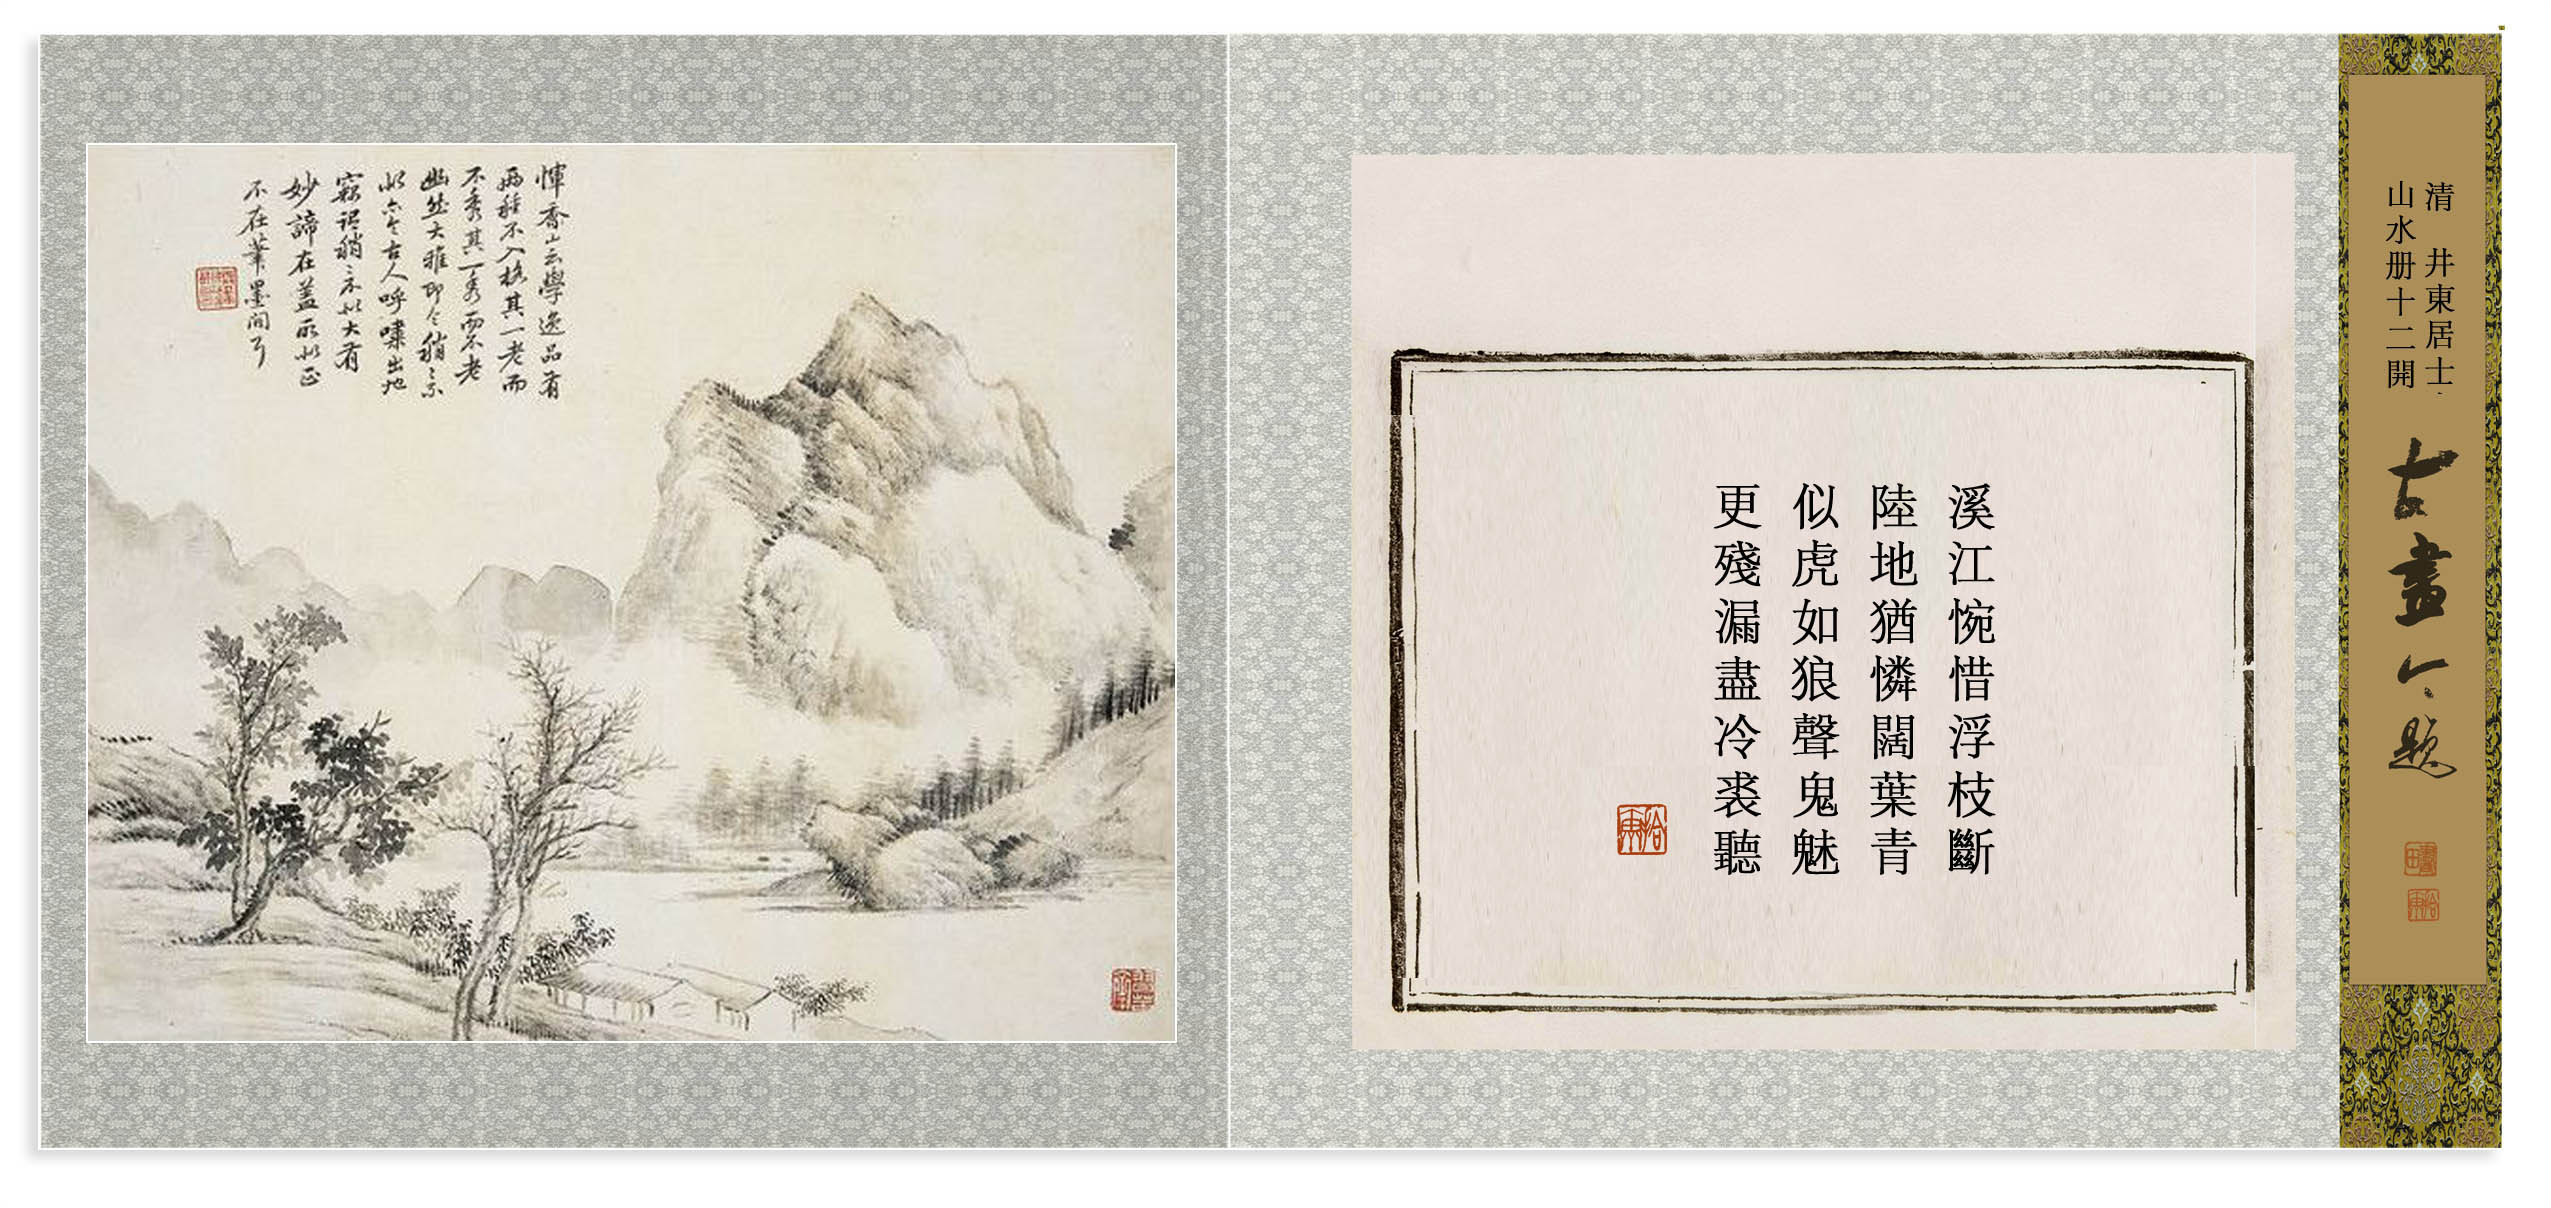 清 井東居士
山水册十二開
古畫今題
溪江惋惜浮枝斷
陸地猶憐闊葉青
似虎如狼聲鬼魅
更殘漏盡冷裘聽
惲香山云學逸品有
兩種不入格其一老而
不秀其一秀而不老
幽然大雅即今稍稍示
古人呼嘯出地
竊謂稍稍示以大有
妙諦在蓋所以正
不在筆墨間耳